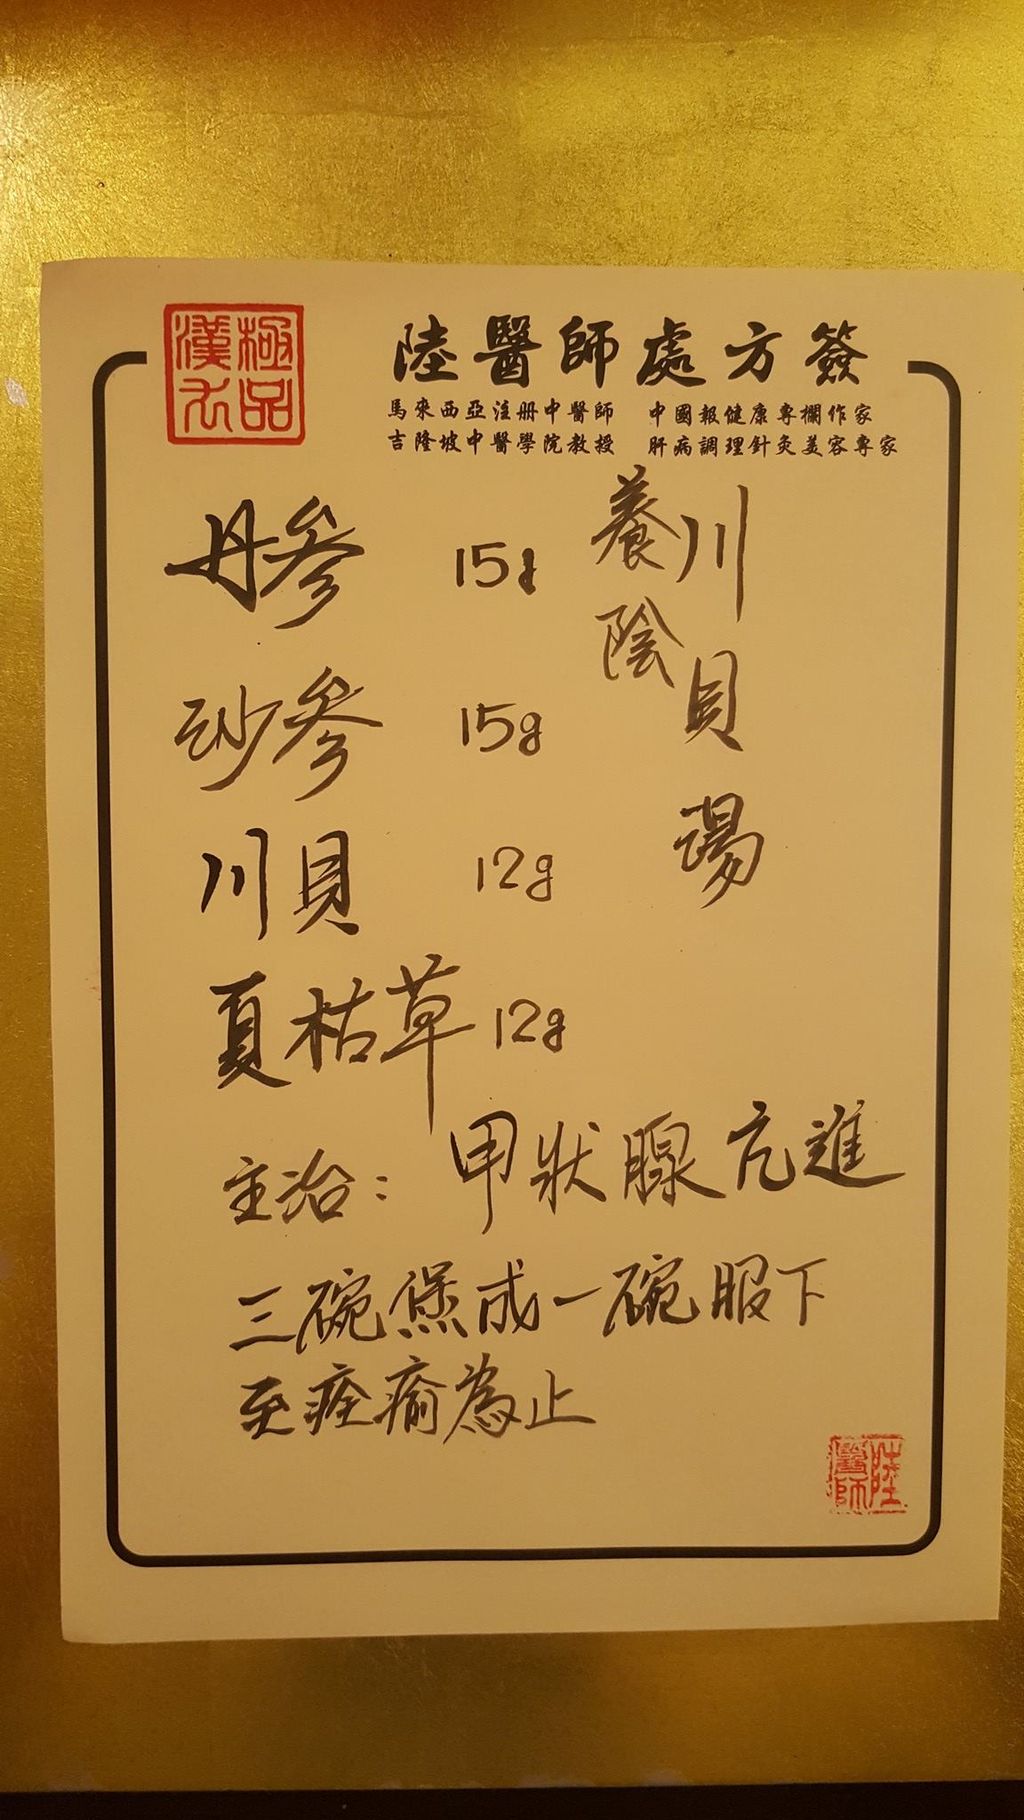 極品
漢方
陸醫師處方簽
馬來西亞注册中醫師 中國報健康專欄作家
吉隆坡中醫學院教授 肝病調理針灸美容專家
養陰
川貝湯
丹參 15g
沙參 15g
川貝 12g
夏枯草 12g
主治: 甲狀腺亢進
三碗煲成一碗服下
至痊癒為止
陸醫師